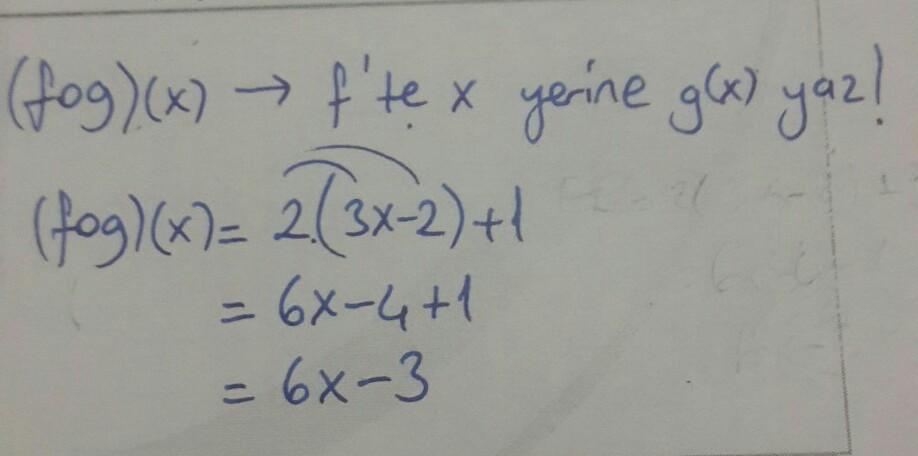 (fog)(x) → f'te x yerine g(x) yaz!
(fog)(x) = 2.(3x-2)+1
= 6x-4+1
= 6x-3